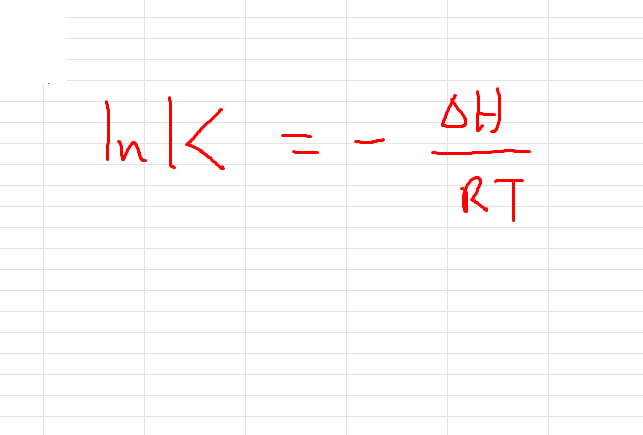 ln K = - ΔH / RT